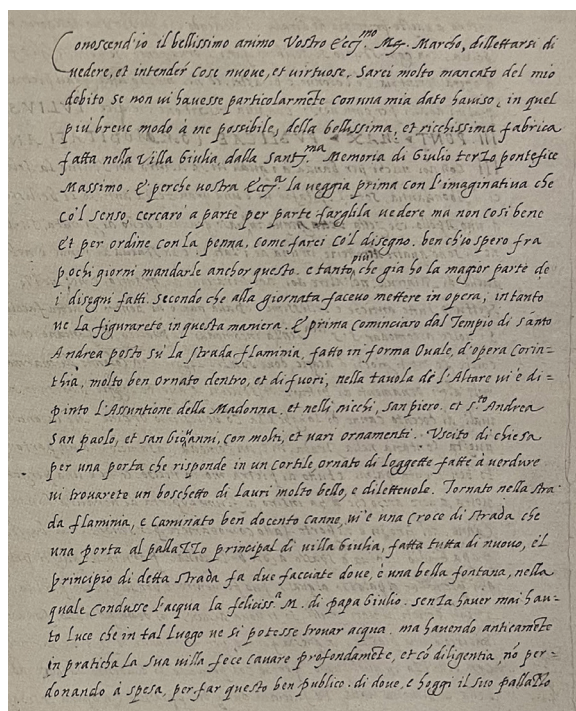 Conoscend'io il bellissimo animo Vostro Ecc.mo Mg. Marcho, dillettarsi di
uedere, et intender cose nuoue, et uirtuose. Sarei molto mancato del mio
debito se non ui hauesse particolarmēte con una mia dato hauiso, in quel
piu breue modo à me possibile, della bellissima, et ricchissima fabrica
fatta nella Villa Giulia, dalla Sant.ma Memoria di Giulio terzo pontefice
Massimo. E perche uostra Ecc.a la ueggia prima con l'imaginatiua che
co'l senso, cercarò a parte per parte fargliela uedere ma non cosi bene
et per ordine con la penna, come farei co'l disegno. ben ch'io spero fra
pochi giorni mandarle anchor questo. e tanto piu che gia ho la magior parte de
i disegni fatti secondo che alla giornata faceuo mettere in opera, in tanto
ue la figurarete in questa maniera. E prima cominciaro dal Tempio di santo
Andrea posto su' la strada flaminia, fatto in forma Ouale, d'opera Corin=
thia, molto ben ornato dentro, et di fuori, nella tauola de l'Altare ui è di=
pinto l'Assuntione della Madonna, et nelli nicchi, san piero. et s.to Andrea
san paolo, et san Giouanni, con molti, et uari ornamenti. Vscito di chiesa
per una porta che risponde in un cortile ornato di loggette fatte à uerdure
ui trouarete un boschetto di Lauri molto bello, e diletteuole. Tornato nella stra
da flaminia, e caminato ben docento canne, ui è una Croce di strada che
una porta al pallazzo principal di uilla Giulia, fatta tutta di nuouo, e'l
principio di detta strada fa due facciate doue, è una bella fontana, nella
quale condusse l'acqua la feliciss.a M. di papa Giulio. senza hauer mai hau=
to luce che in tal luogo ue si potesse trouar acqua. ma hauendo anticamēte
in praticha la sua uilla fece cauare profondamēte, et cō diligentia, nō per=
donando à spesa, per far questo ben publico. di doue, e hoggi il suo pallazzo